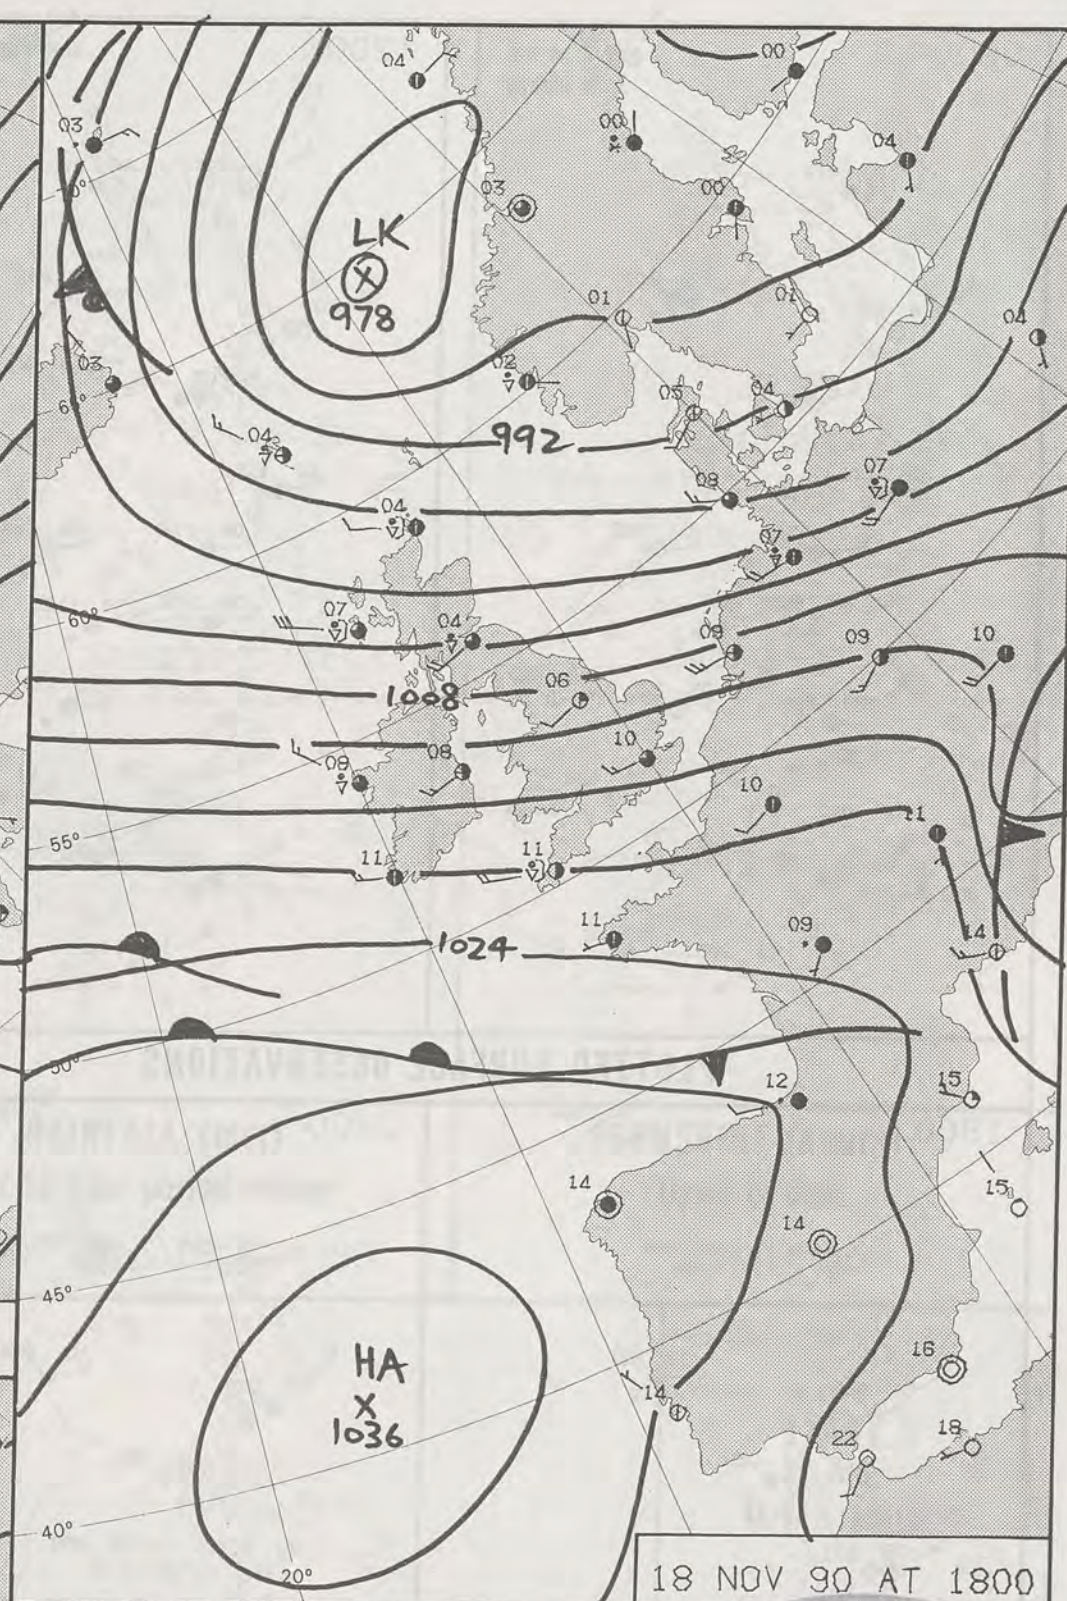 04
00
03
00
04
03
00
LK
978
01
01
04
03
02
05
04
65°
992
04
08
07
04
07
60°
07
04
09
09
10
1008
06
08
08
10
10
11
55°
11
11
11
1024
14
09
50°
12
15
14
15
14
45°
HA
X
1036
16
14
22
18
40°
20°
18 NOV 90 AT 1800